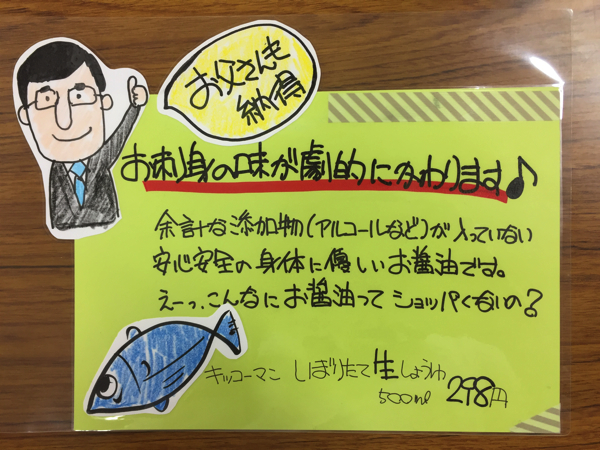 お父さんも
納得
お刺身の味が劇的にかわります♪
余計な添加物(アルコールなど)が入っていない
安心安全の身体に優しいお醤油です。
えーっ、こんなにお醤油ってショッパくないの?
キッコーマン しぼりたて生しょうゆ
500ml 298円